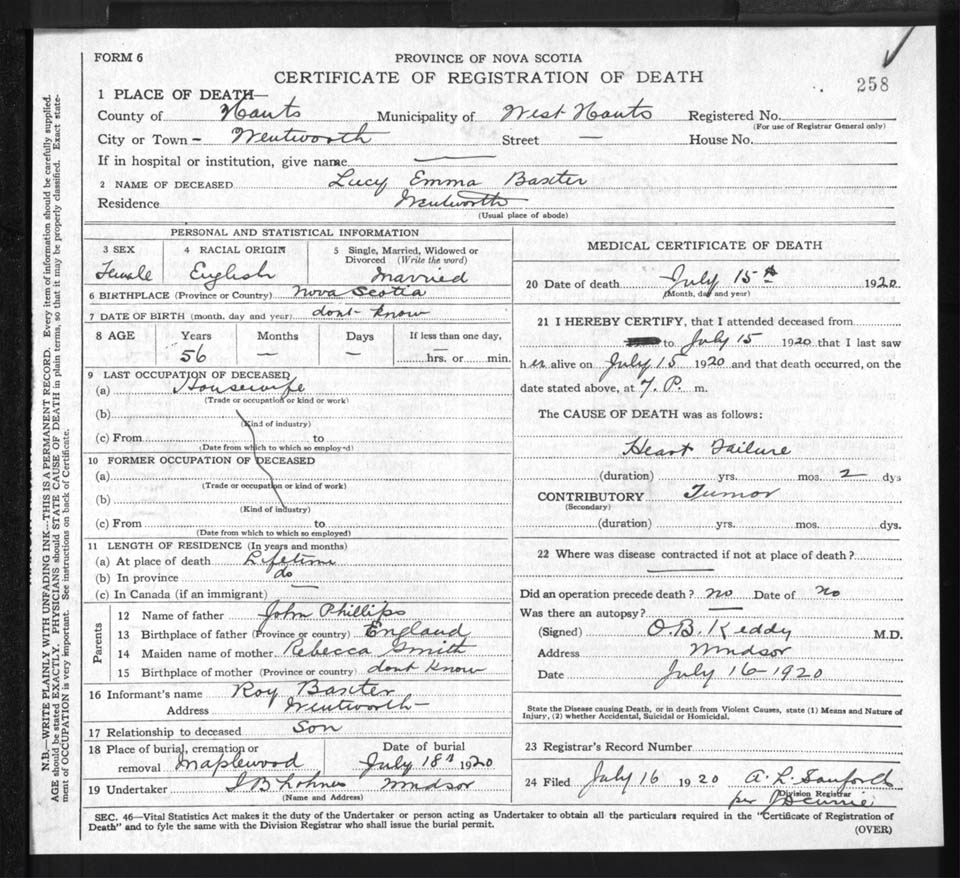 FORM 6
PROVINCE OF NOVA SCOTIA
CERTIFICATE OF REGISTRATION OF DEATH
258
1 PLACE OF DEATH—
County of Hants Municipality of West Hants Registered No.
(For use of Registrar General only)
City or Town – Wentworth Street — House No.
If in hospital or institution, give name —
2 NAME OF DECEASED Lucy Emma Baxter
Residence Wentworth
(Usual place of abode)
PERSONAL AND STATISTICAL INFORMATION
3 SEX
Female
4 RACIAL ORIGIN
English
5 Single, Married, Widowed or
Divorced (Write the word)
Married
6 BIRTHPLACE (Province or Country) Nova Scotia
7 DATE OF BIRTH (month, day and year) dont know
8 AGE Years Months Days If less than one day,
56 — — hrs. or min.
9 LAST OCCUPATION OF DECEASED
(a) Housewife
(Trade or occupation or kind or work)
(b)
(Kind of industry)
(c) From to
(Date from which to which so employed)
10 FORMER OCCUPATION OF DECEASED
(a)
(Trade or occupation or kind of work)
(b)
(Kind of industry)
(c) From to
(Date from which to which so employed)
11 LENGTH OF RESIDENCE (In years and months)
(a) At place of death Lifetime
(b) In province do
(c) In Canada (if an immigrant) —
Parents
12 Name of father John Phillips
13 Birthplace of father (Province or country) England
14 Maiden name of mother Rebecca Smith
15 Birthplace of mother (Province or country) dont know
16 Informant's name Roy Baxter
Address Wentworth –
17 Relationship to deceased Son
18 Place of burial, cremation or Date of burial
removal Maplewood July 18th 1920
19 Undertaker Windsor
(Name and Address)
MEDICAL CERTIFICATE OF DEATH
20 Date of death July 15th 1920
(Month, day and year)
21 I HEREBY CERTIFY, that I attended deceased from
to July 15 1920 that I last saw
her alive on July 15 1920 and that death occurred, on the
date stated above, at 7. P. m.
The CAUSE OF DEATH was as follows:
Heart Failure
(duration) yrs. mos. 2 dys
CONTRIBUTORY Tumor
(Secondary)
(duration) yrs. mos. dys.
22 Where was disease contracted if not at place of death?
—
Did an operation precede death? no Date of no
Was there an autopsy? —
(Signed) O.B. Keddy M.D.
Address Windsor
Date July 16–1920
State the Disease causing Death, or in death from Violent Causes, state (1) Means and Nature of
Injury, (2) whether Accidental, Suicidal or Homicidal.
23 Registrar's Record Number
24 Filed July 16 1920 A. L. Sanford
Division Registrar
per
SEC. 46—Vital Statistics Act makes it the duty of the Undertaker or person acting as Undertaker to obtain all the particulars required in the "Certificate of Registration of
Death" and to fyle the same with the Division Registrar who shall issue the burial permit.
(OVER)
N.B.—WRITE PLAINLY WITH UNFADING INK—THIS IS A PERMANENT RECORD. Every item of information should be carefully supplied.
AGE should be stated EXACTLY. PHYSICIANS should STATE CAUSE OF DEATH in plain terms, so that it may be properly classified. Exact state-
ment of OCCUPATION is very important. See instructions on back of Certificate.